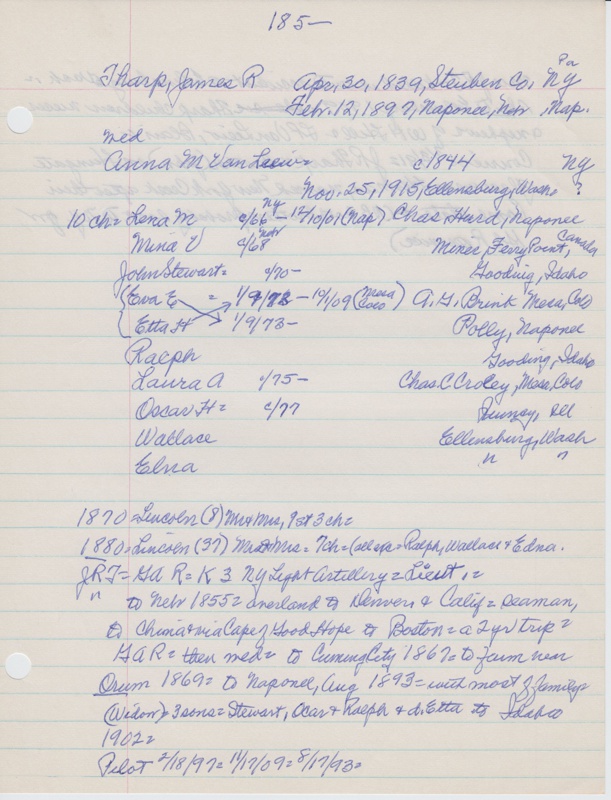 185—
Pa
Tharp, James R Apr, 30, 1839, Steuben Co, NY
Febr. 12, 1897, Naponee, Nebr, Nap.
med
Anna M Van c1844 NY
Nov. 25, 1915, Ellensburg, Wash ?
10 ch= Lena M c/66 NY – 12/10/01 (Nap) Chas. Hurd, Naponee
Mina V c/68 Nebr Miner, Ferry Point, Canada
John Stewart= c/70– Gooding, Idaho
Eva E = 1/9/73 – 10/1/09 (Mesa Colo) A. G. Brink Mesa, Colo
Etta H 1/9/73– Polly, Naponee
Ralph Gooding, Idaho
Laura A c/75– Chas. C Croley, Mesa, Colo
Oscar H= c/77 Rumsy, Ill
Wallace Ellensburg, Wash
Edna " "
1870=Lincoln (8) Mr&Mrs, 1st 3ch=
1880=Lincoln (37) Mr&Mrs= 7ch=(all exc= Ralph, Wallace & Edna.
JRT= GAR= K 3 NY Light Artillery= Lieut.=
" to Nebr 1855= overland to Denver & Calif= seaman,
to China & via Cape of Good Hope to Boston= a 2 yr trip=
GAR= then med= to Cuming City 1867= to farm near
Orum 1869= to Naponee, Aug 1893= with most of family=
(Widow)= 3 sons= Stewart, Ocar & Ralph & d. Etta to Idaho
1902=
Pilot 2/18/97= 11/17/09= 8/17/93=